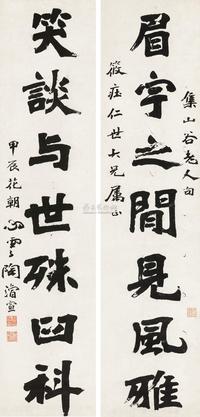 集山谷老人句
眉宇之間見風雅
筱仁世大兄属正
笑談与世殊臼科
甲辰花朝心雲陶濬宣